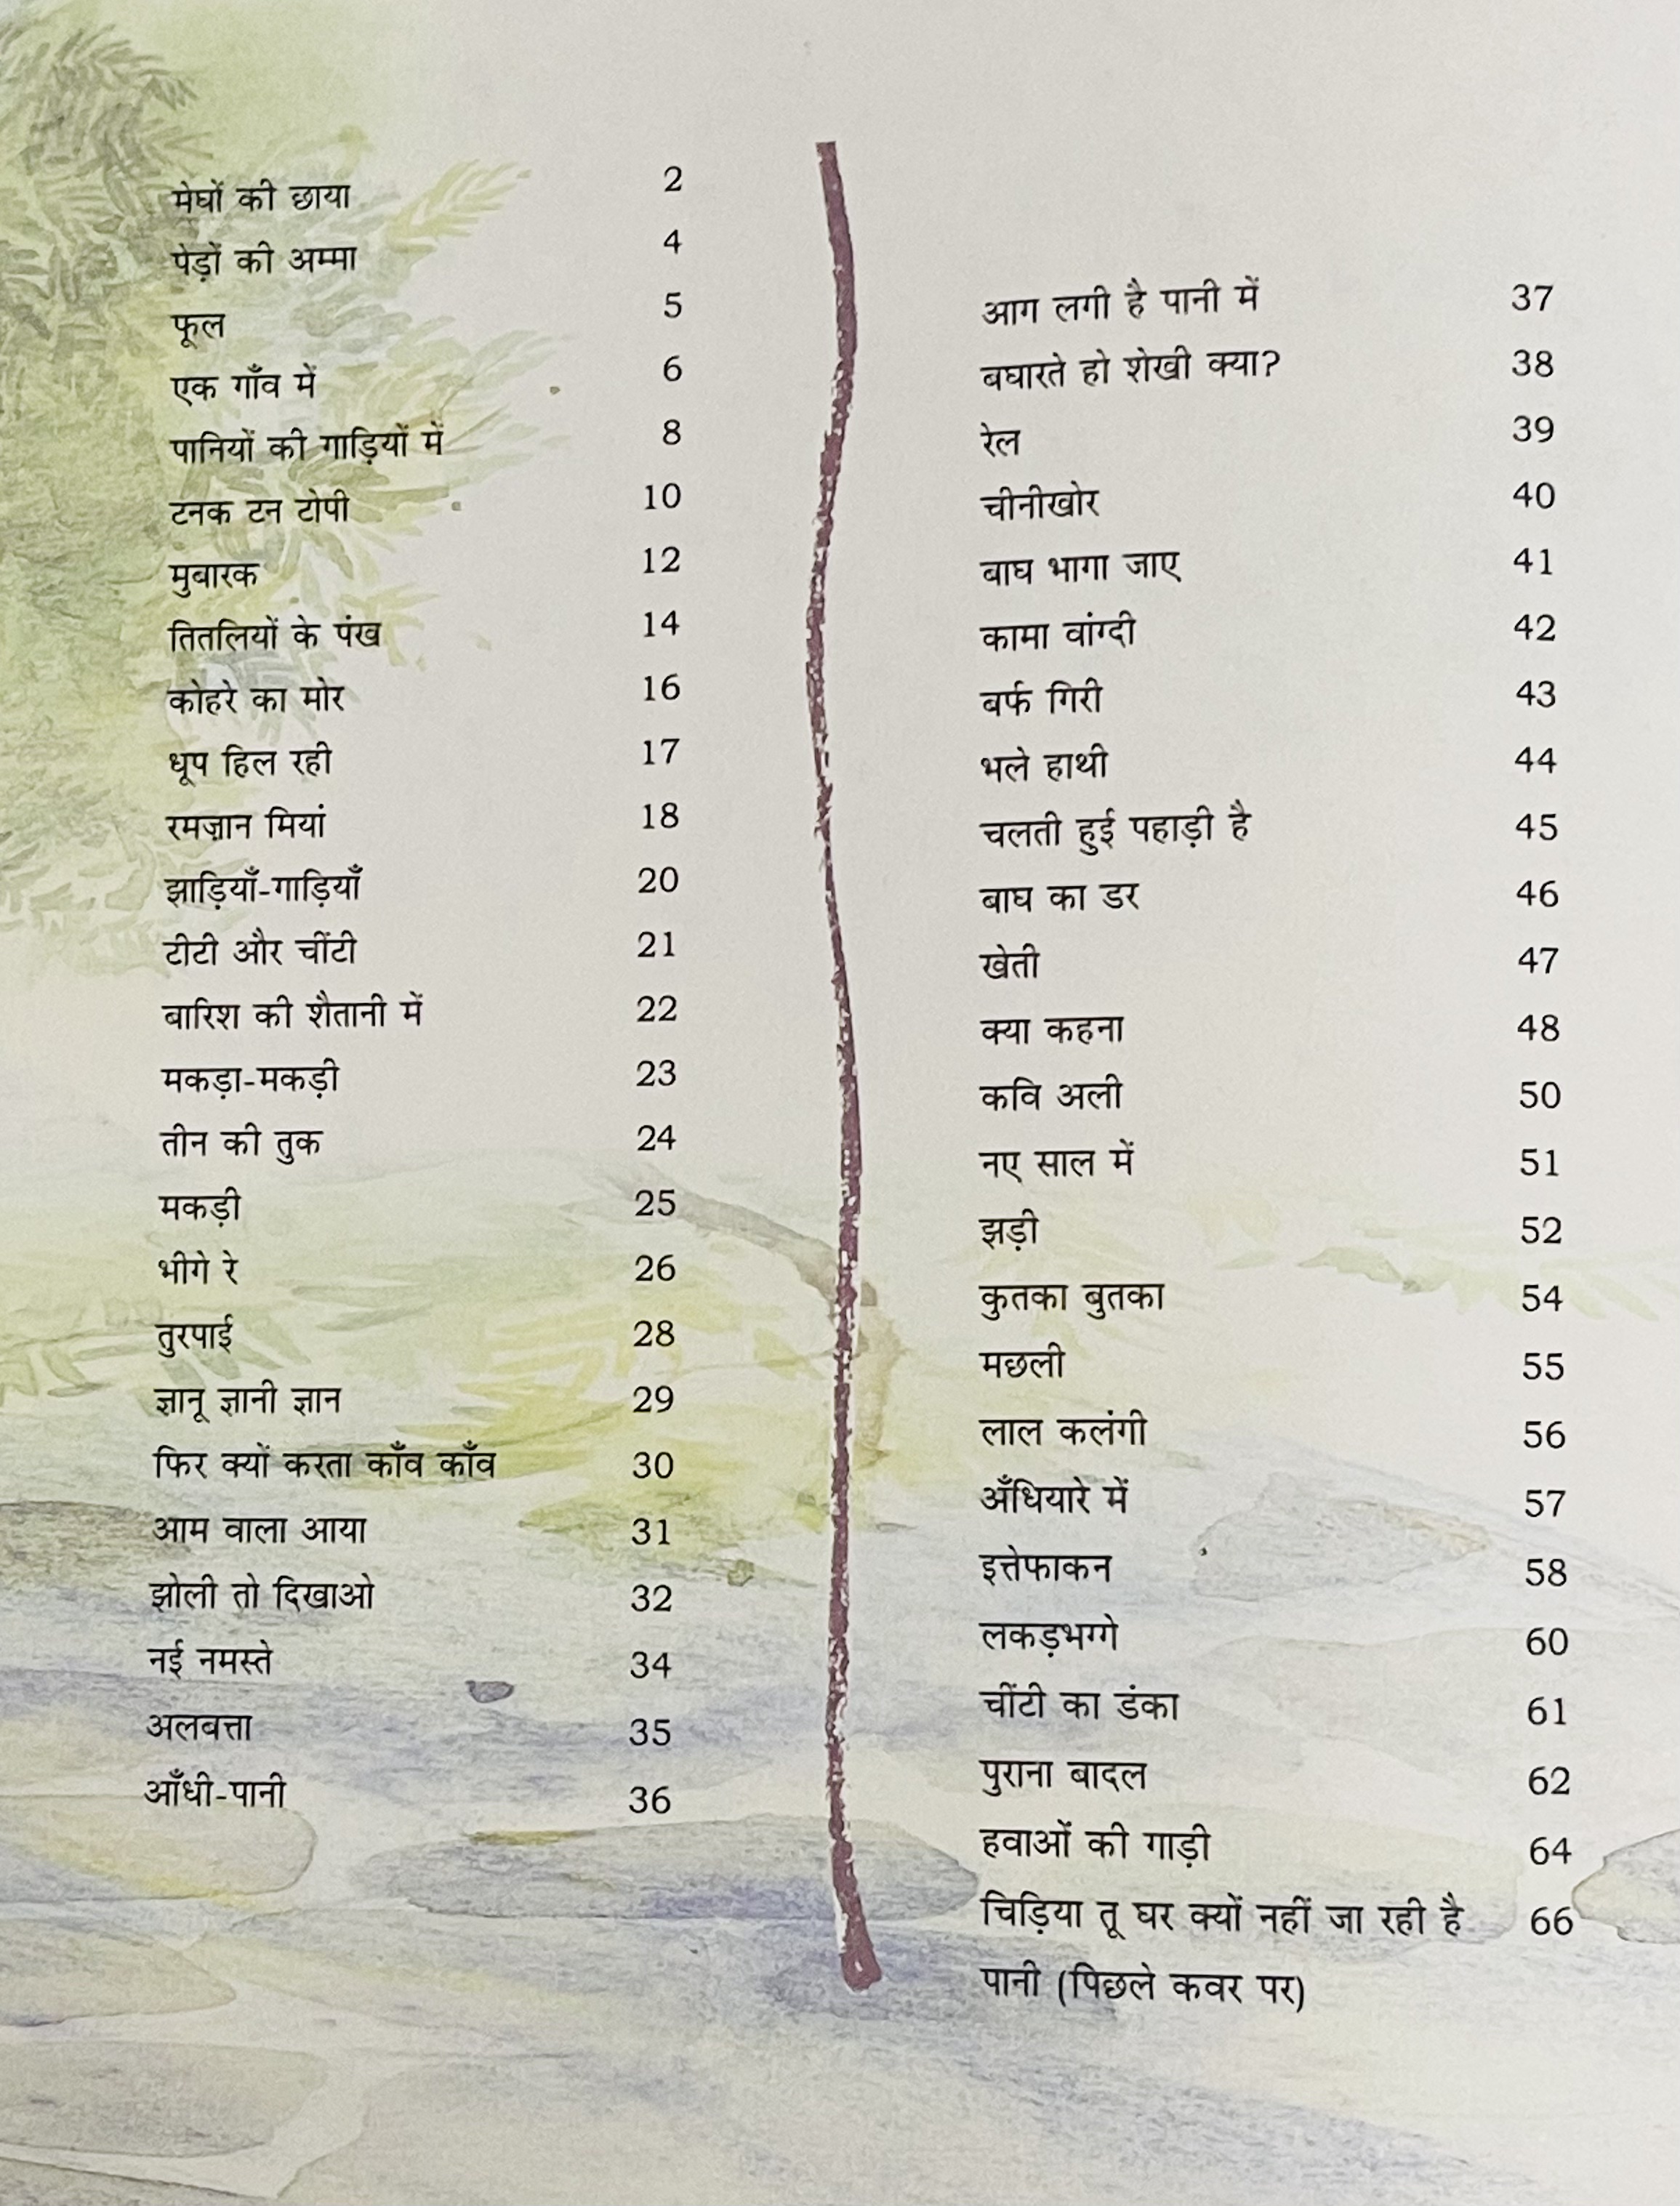 मेघों की छाया 2
पेड़ों की अम्मा 4
फूल 5
एक गाँव में 6
पानियों की गाड़ियों में 8
टनक टन टोपी 10
मुबारक 12
तितलियों के पंख 14
कोहरे का मोर 16
धूप हिल रही 17
रमज़ान मियां 18
झाड़ियाँ-गाड़ियाँ 20
टीटी और चींटी 21
बारिश की शैतानी में 22
मकड़ा-मकड़ी 23
तीन की तुक 24
मकड़ी 25
भीगे रे 26
तुरपाई 28
ज्ञानू ज्ञानी ज्ञान 29
फिर क्यों करता काँव काँव 30
आम वाला आया 31
झोली तो दिखाओ 32
नई नमस्ते 34
अलबत्ता 35
आँधी-पानी 36
आग लगी है पानी में 37
बघारते हो शेखी क्या? 38
रेल 39
चीनीखोर 40
बाघ भागा जाए 41
कामा वांग्दी 42
बर्फ गिरी 43
भले हाथी 44
चलती हुई पहाड़ी है 45
बाघ का डर 46
खेती 47
क्या कहना 48
कवि अली 50
नए साल में 51
झड़ी 52
कुतका बुतका 54
मछली 55
लाल कलंगी 56
अँधियारे में 57
इत्तेफाकन 58
लकड़भग्गे 60
चींटी का डंका 61
पुराना बादल 62
हवाओं की गाड़ी 64
चिड़िया तू घर क्यों नहीं जा रही है 66
पानी (पिछले कवर पर)